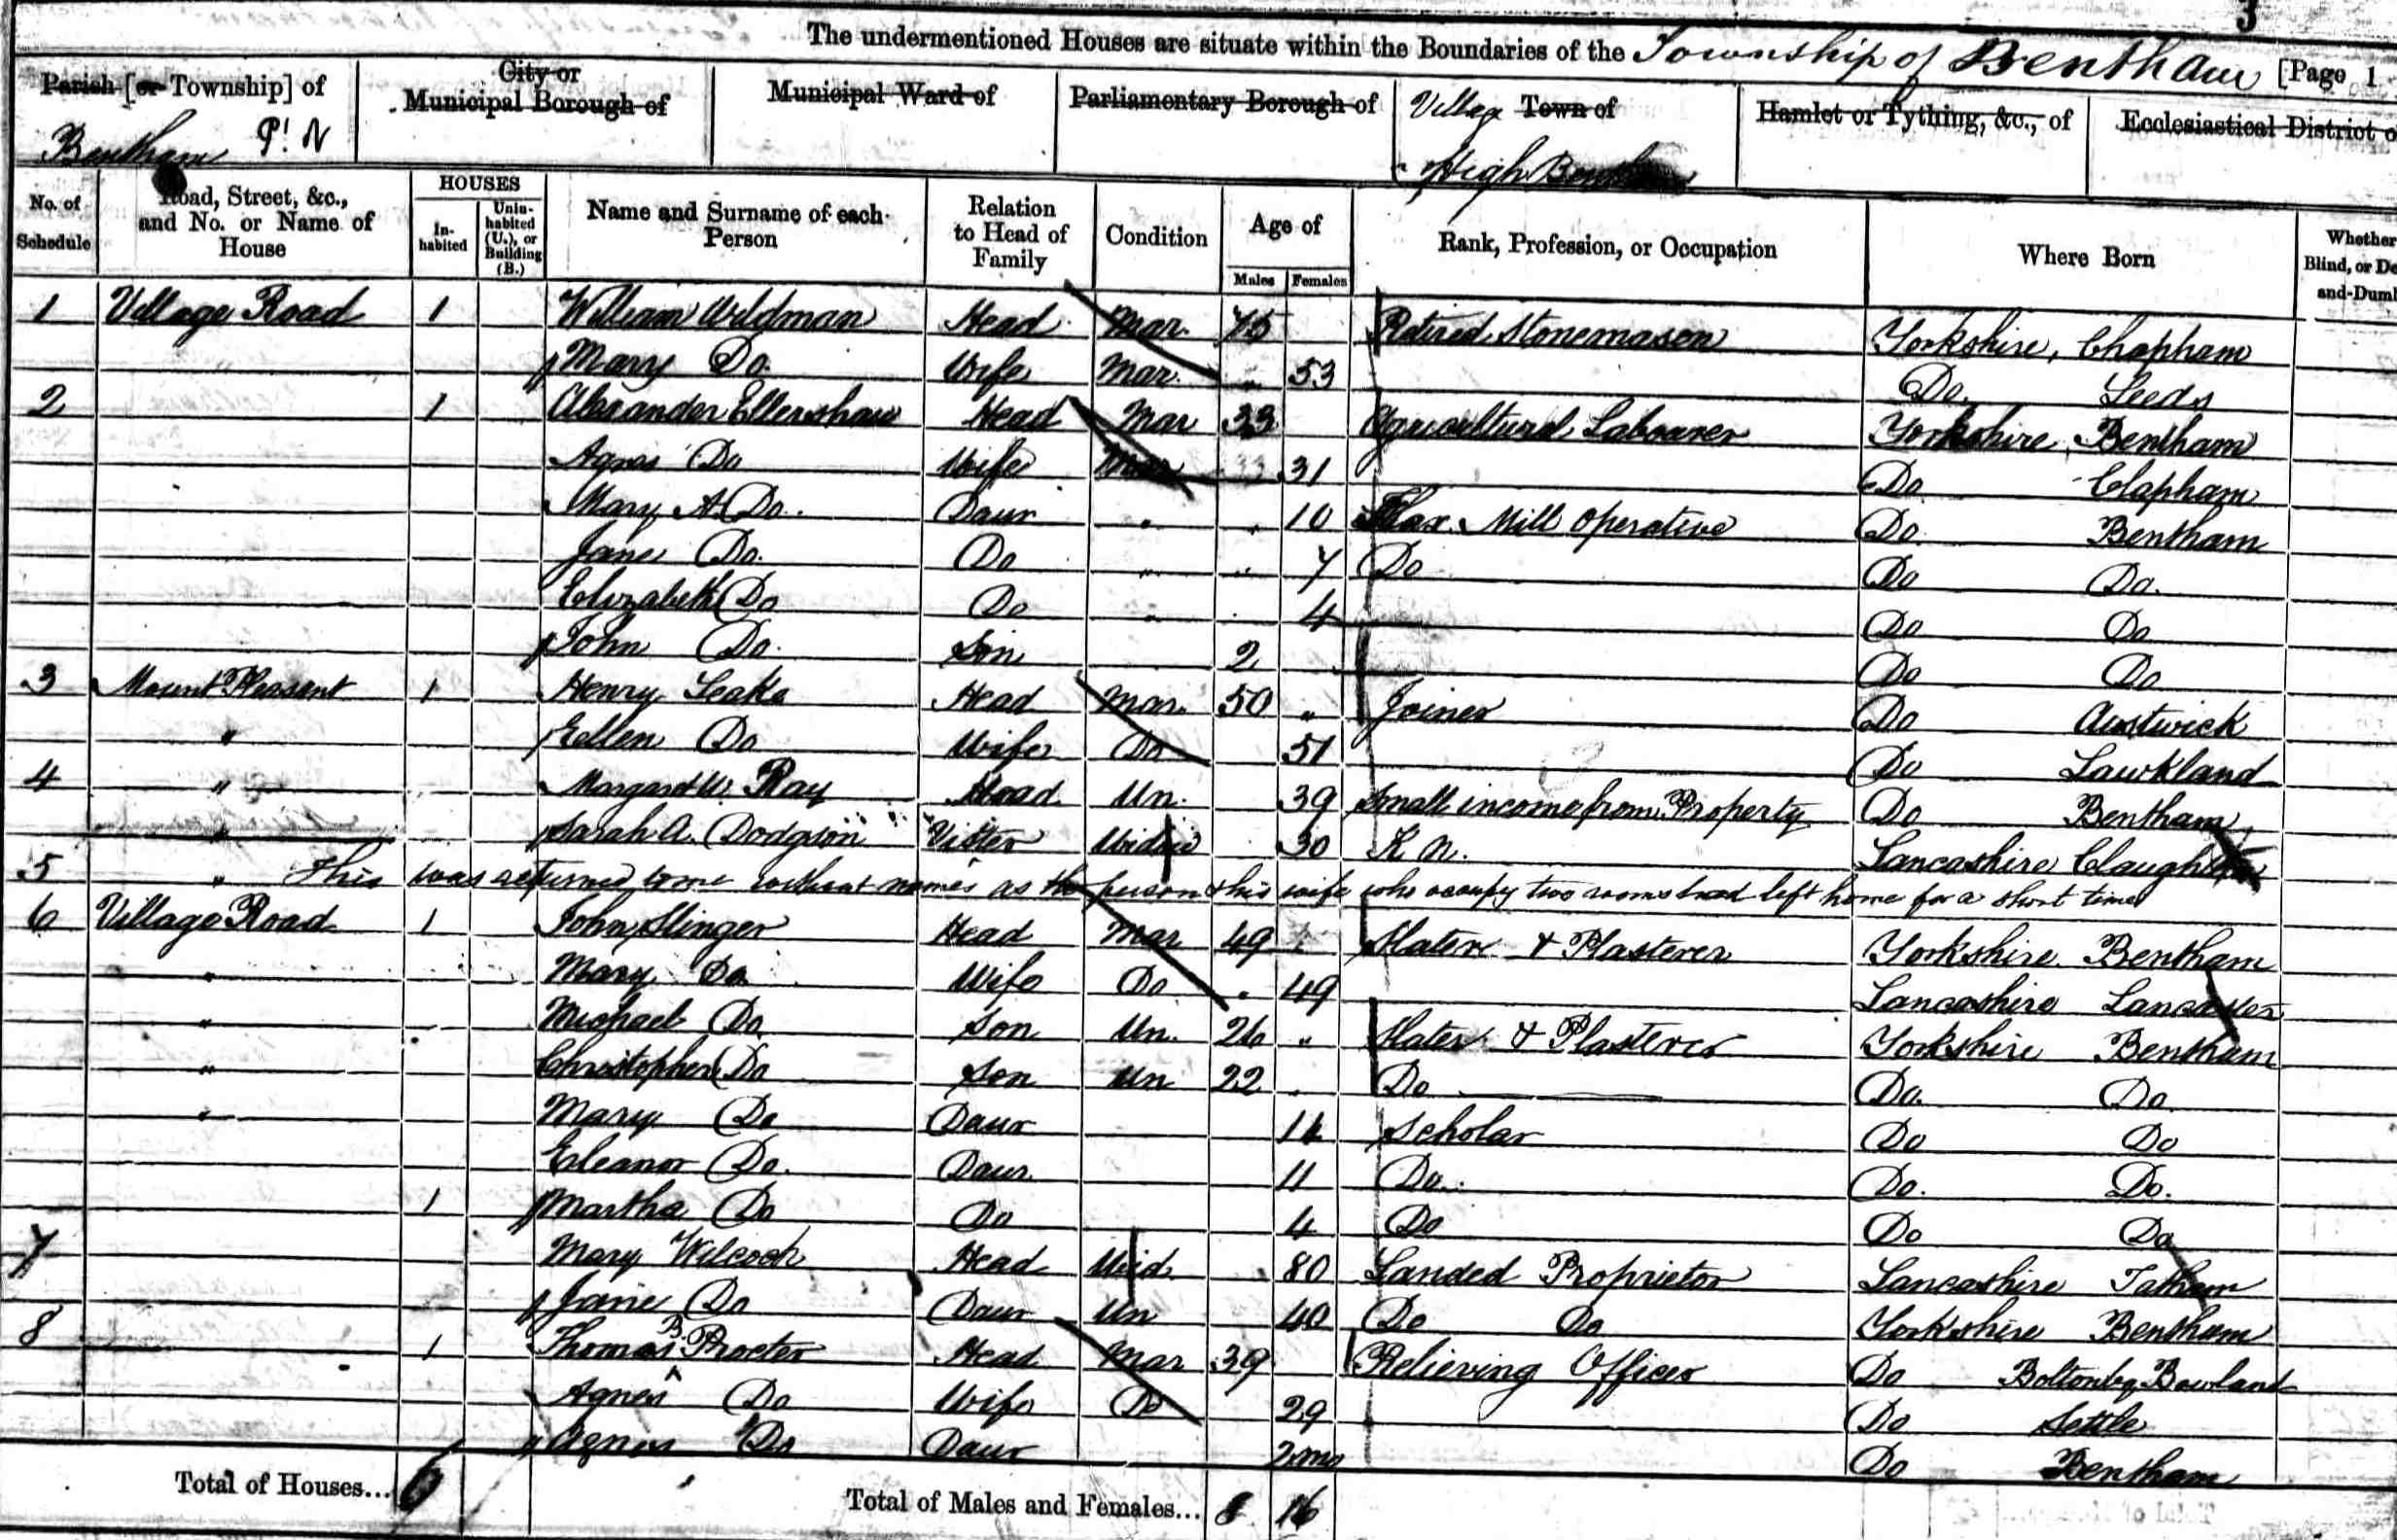 3
The undermentioned Houses are situate within the Boundaries of the Township of Bentham [Page 1
Parish [or Township] of City or Municipal Borough of Municipal Ward of Parliamentary Borough of Village Town of Hamlet or Tything, &c., of Ecclesiastical District o
Bentham Pt. N High Bentham
No. of Schedule Road, Street, &c., and No. or Name of House HOUSES In-habited Unin-habited (U.), or Building (B.) Name and Surname of each Person Relation to Head of Family Condition Age of Males Females Rank, Profession, or Occupation Where Born Whether Blind, or De and-Dumb
1 Village Road 1 William Wildman Head Mar. 75 Retired Stonemason Yorkshire, Chapham
Mary Do. Wife Mar. „ 53 Do. Leeds
2 1 Alexander Ellershaw Head Mar 33 Agricultural Labourer Yorkshire, Bentham
Agnes Do Wife Mar 31 Do Clapham
Mary A. Do. Daur „ „ 10 Flax Mill Operative Do Bentham
Jane Do. Do „ „ 7 Do Do Do.
Elizabeth Do Do „ 4 Do Do
John Do. Son 2 Do Do
3 Mount Pleasant 1 Henry Leake Head Mar. 50 „ Joiner Do Austwick
„ Ellen Do Wife Do 51 Do Lawkland
4 „ Margaret W. Ray Head Un. 39 Small income from Property Do Bentham
„ Sarah A. Dodgson Vister Widow 30 K N. Lancashire Claughton
5 „ This was returned to me without names as the person & his wife who occupy two rooms had left home for a short time
6 Village Road 1 John Slinger Head Mar 49 „ Slater & Plasterer Yorkshire Bentham
„ Mary Do Wife Do „ 49 Lancashire Lancaster
„ Michael Do Son Un. 26 „ Slater & Plasterer Yorkshire Bentham
„ Christopher Do Son Un 22 „ Do Do. Do
„ Mary Do Daur 14 Scholar Do Do
Eleanor Do. Daur. 11 Do. Do. Do.
1 Martha Do Do 4 Do Do Do
7 Mary Wilcock Head Wid. 80 Landed Proprietor Lancashire Tatham
Jane Do Daur Un 40 Do Do Yorkshire Bentham
8 1 Thomas B. Procter Head Mar 39 Relieving Officer Do Bolton by Bowland
Agnes Do Wife Do 29 Do Settle
Agnes Do Daur 2 mo Do Bentham
Total of Houses... 6 Total of Males and Females... 8 16